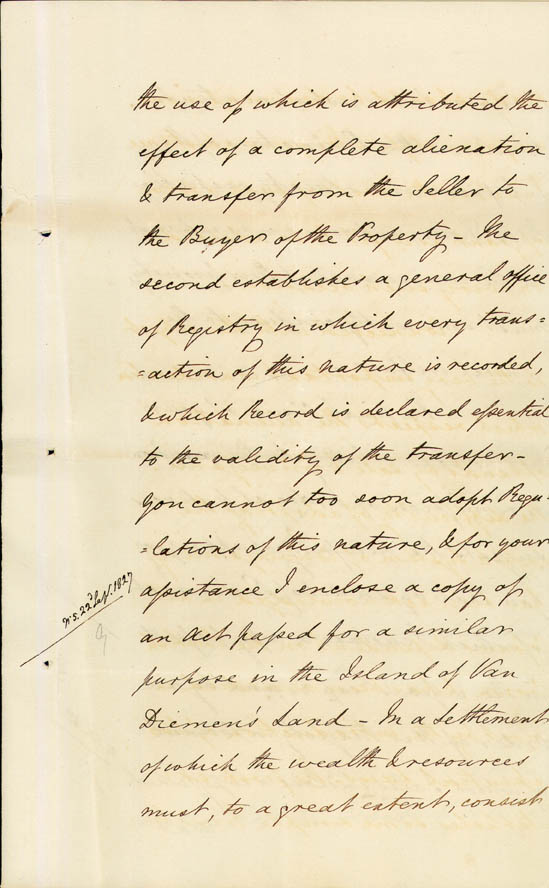 the use of which is attributed the
effect of a complete alienation
& transfer from the Seller to
the Buyer of the Property - The
second establishes a general office
of Registry in which every trans=
=action of this nature is recorded,
& which Record is declared essential
to the validity of the transfer -
You cannot too soon adopt Regu-
=lations of this nature, & for your
assistance I enclose a copy of
an Act passed for a similar
purpose in the Island of Van
Diemen's Land - In a Settlement
of which the wealth & resources
must, to a great extent, consist
22d Sept. 1827